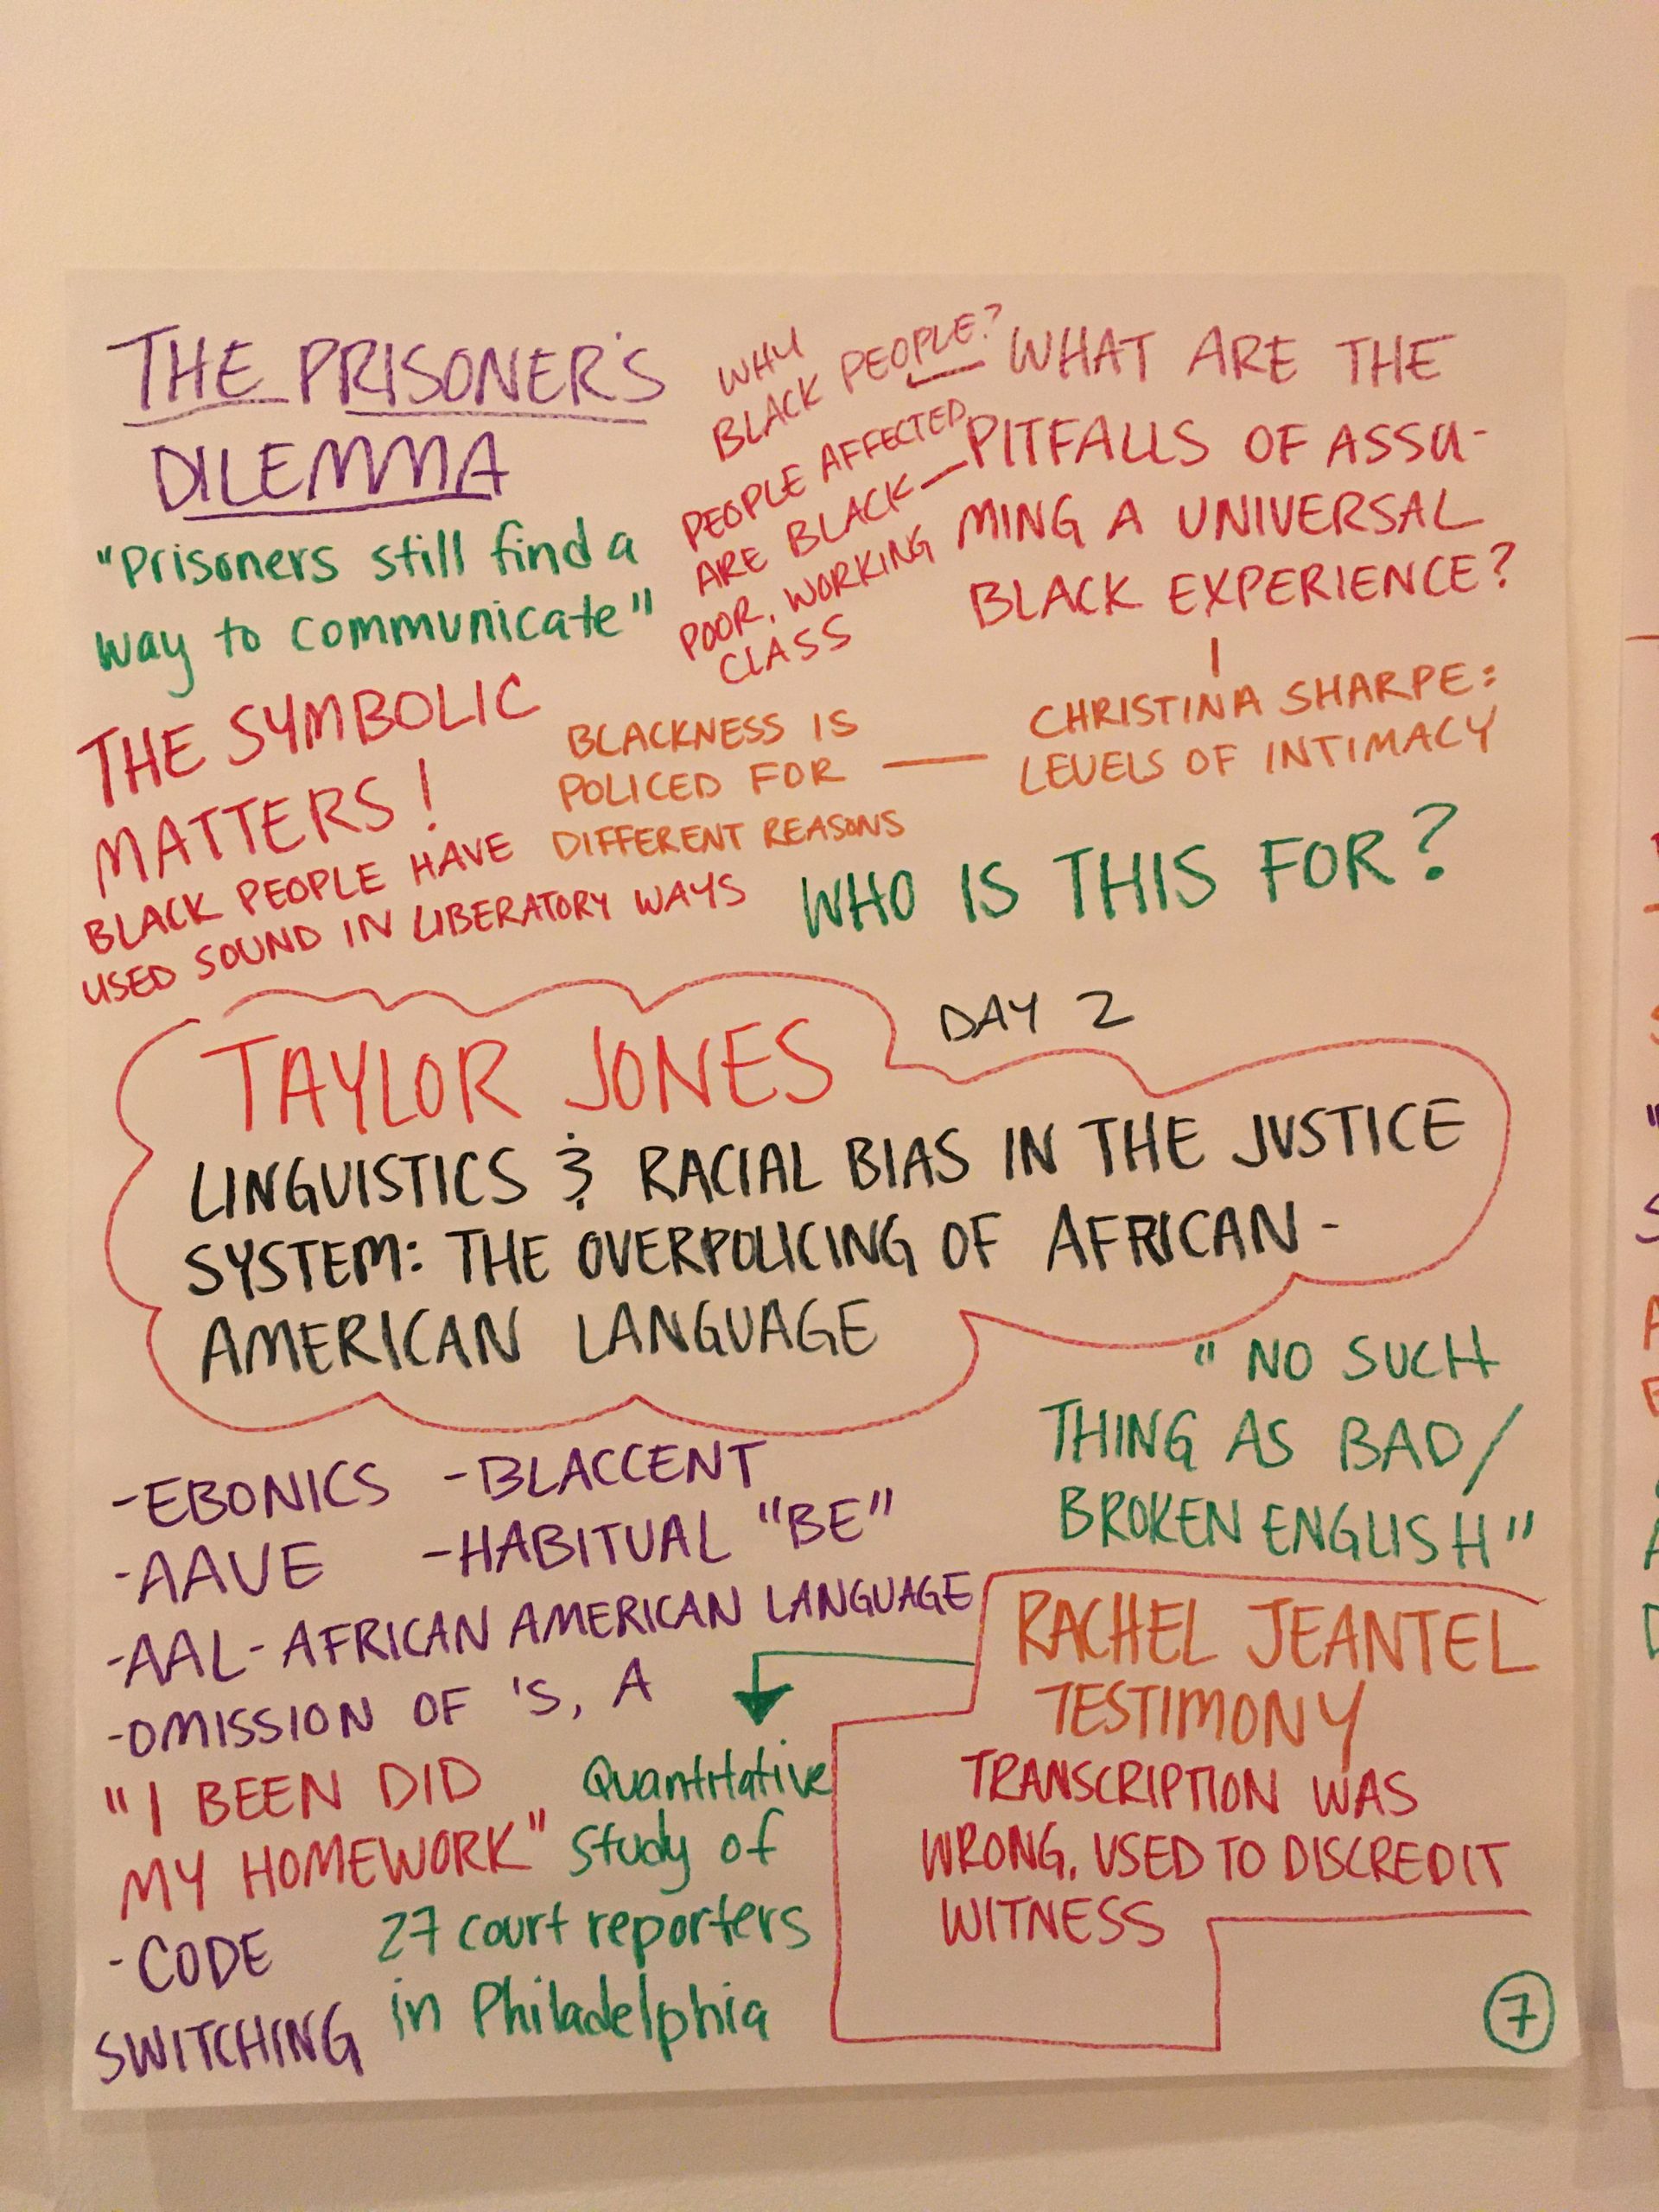 THE PRISONER'S
DILEMMA
"Prisoners still find a
way to communicate"
THE SYMBOLIC
MATTERS!
BLACK PEOPLE HAVE
USED SOUND IN LIBERATORY WAYS
WHY
BLACK PEOPLE?
PEOPLE AFFECTED
ARE BLACK—
POOR, WORKING
CLASS
WHAT ARE THE
PITFALLS OF ASSU-
MING A UNIVERSAL
BLACK EXPERIENCE?
CHRISTINA SHARPE:
LEVELS OF INTIMACY
BLACKNESS IS
POLICED FOR
DIFFERENT REASONS
WHO IS THIS FOR?
DAY 2
TAYLOR JONES
LINGUISTICS & RACIAL BIAS IN THE JUSTICE
SYSTEM: THE OVERPOLICING OF AFRICAN-
AMERICAN LANGUAGE
"NO SUCH
THING AS BAD/
BROKEN ENGLISH"
-EBONICS -BLACCENT
-AAVE -HABITUAL "BE"
-AAL-AFRICAN AMERICAN LANGUAGE
-OMISSION OF 'S, A
"I BEEN DID
MY HOMEWORK"
-CODE
SWITCHING
Quantitative
study of
27 court reporters
in Philadelphia
RACHEL JEANTEL
TESTIMONY
TRANSCRIPTION WAS
WRONG, USED TO DISCREDIT
WITNESS
7